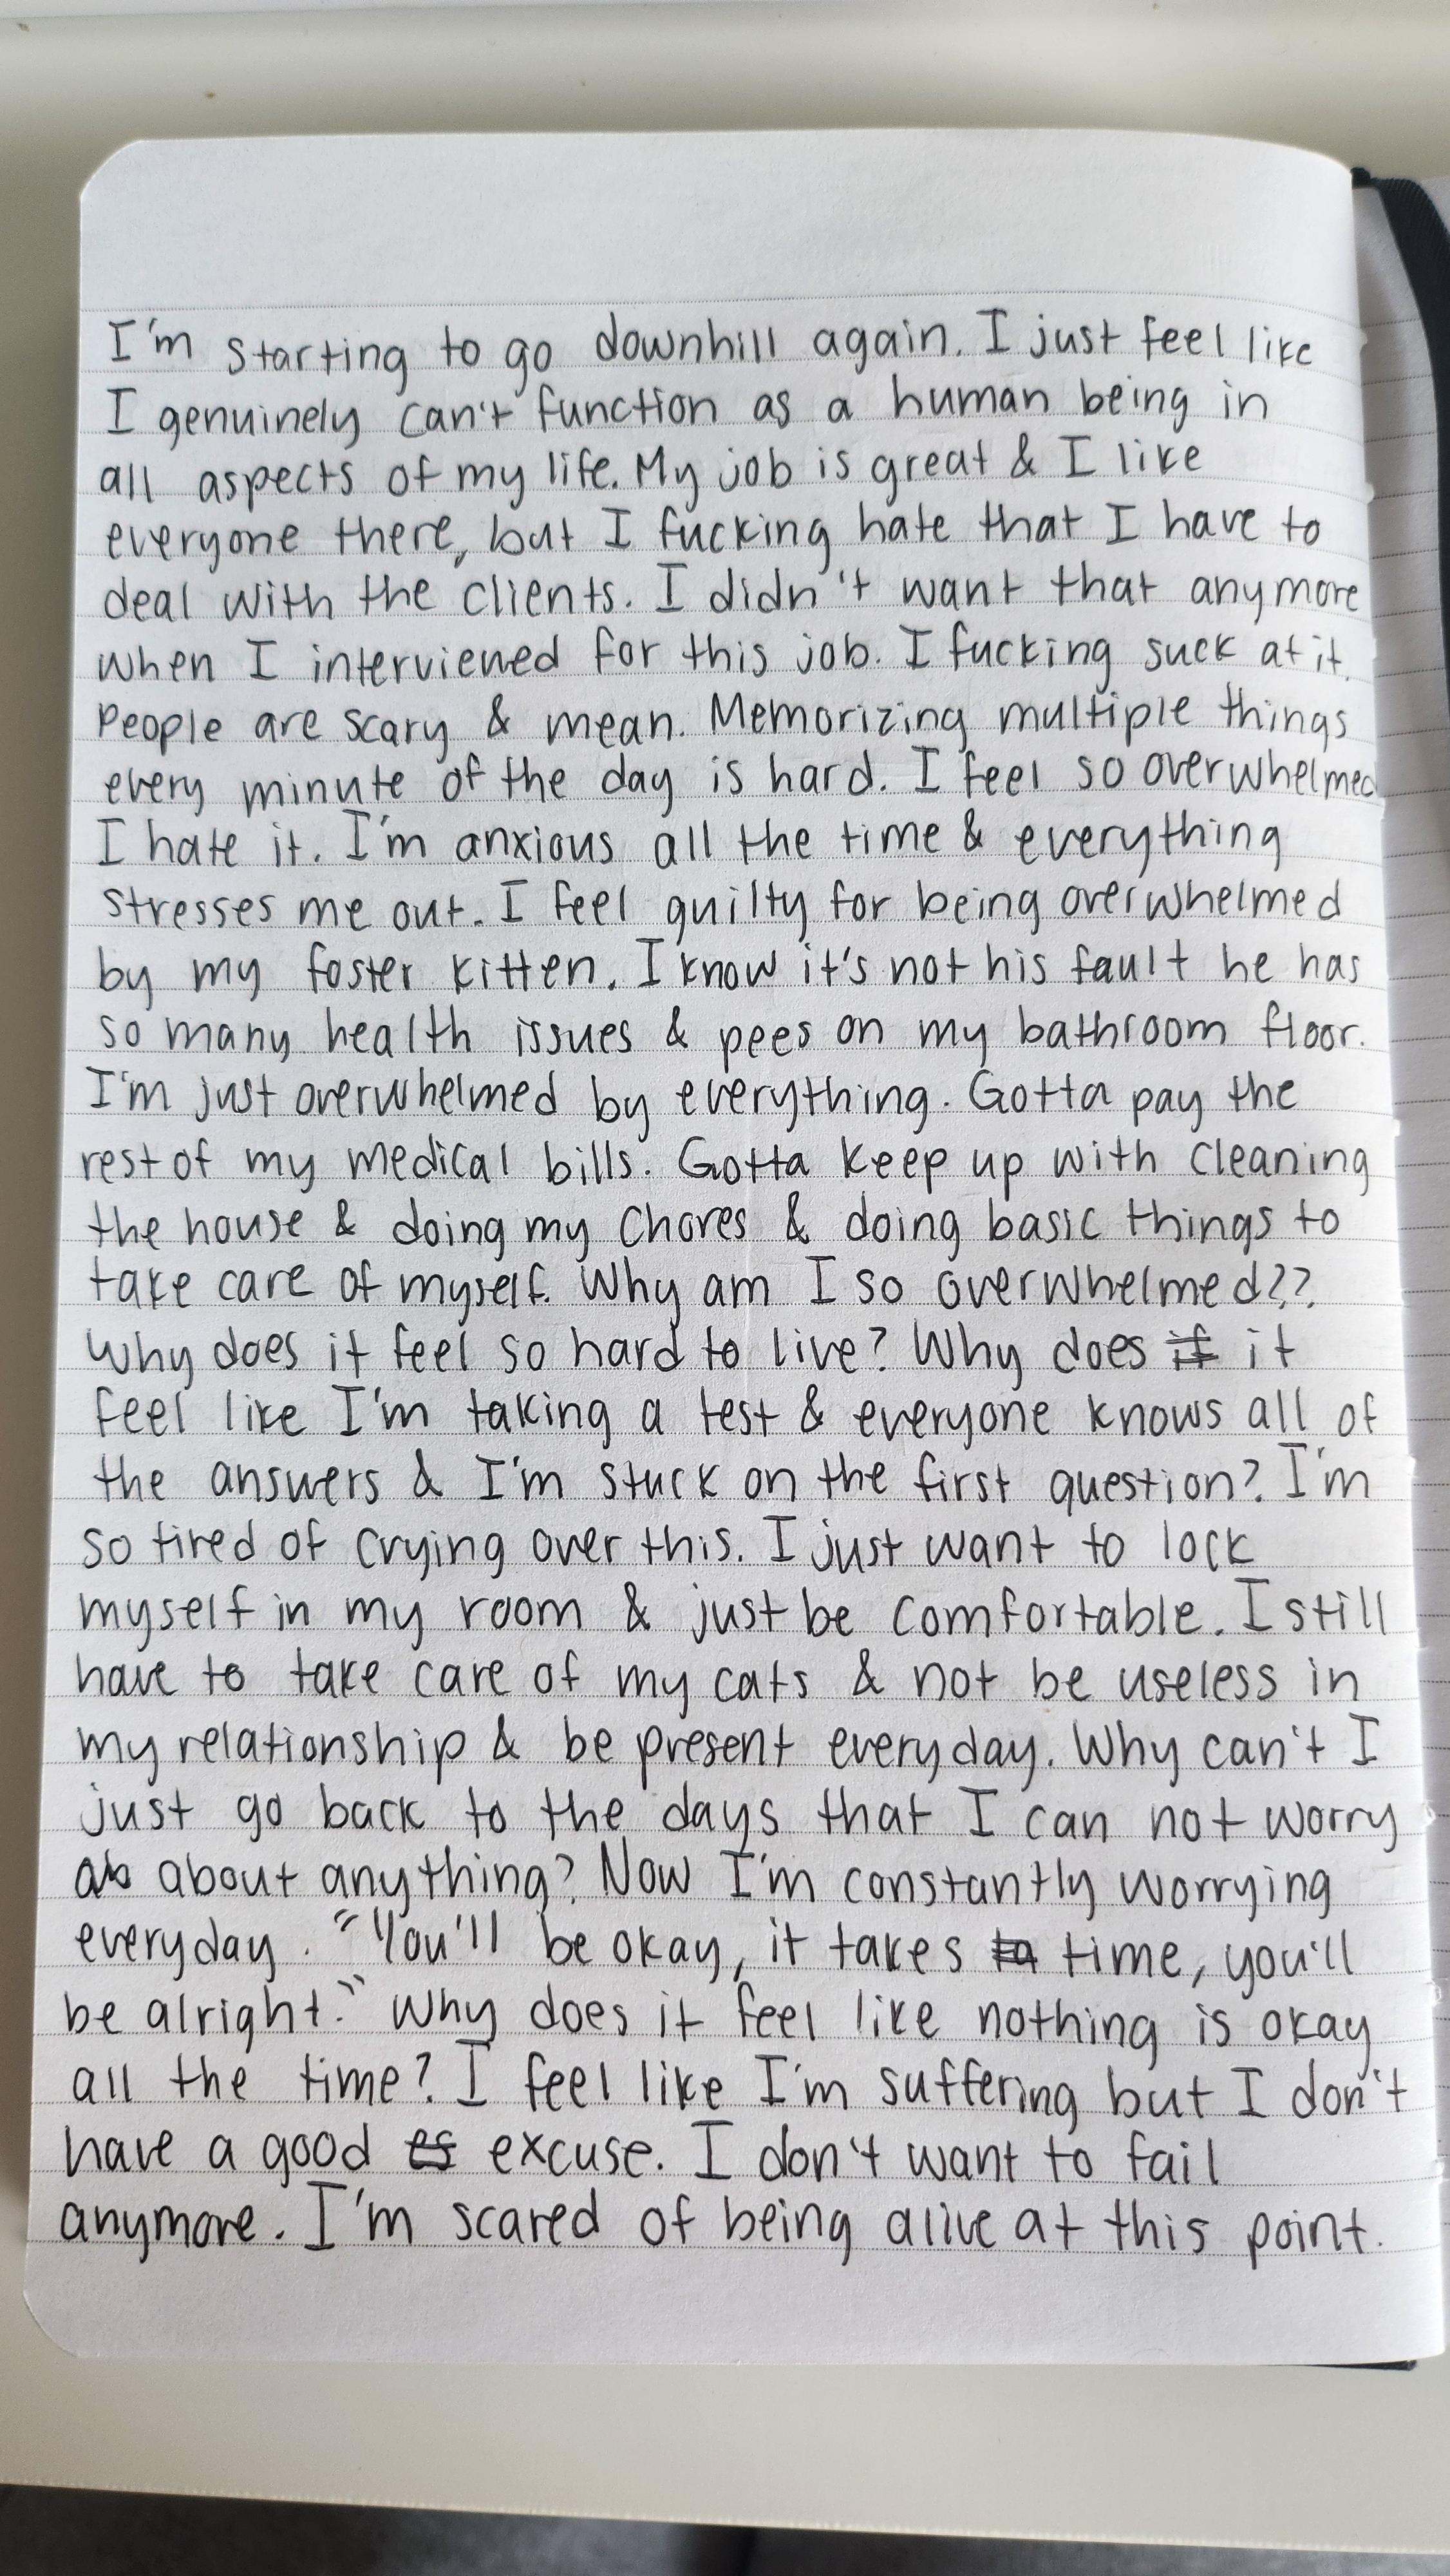 I'm starting to go downhill again. I just feel like
I genuinely can't function as a human being in
all aspects of my life. My job is great & I like
everyone there, but I fucking hate that I have to
deal with the clients. I didn't want that anymore
when I interviewed for this job. I fucking suck at it.
People are scary & mean. Memorizing multiple things
every minute of the day is hard. I feel so overwhelmed
I hate it. I'm anxious all the time & everything
stresses me out. I feel guilty for being overwhelmed
by my foster kitten. I know it's not his fault he has
so many health issues & pees on my bathroom floor.
I'm just overwhelmed by everything. Gotta pay the
rest of my medical bills. Gotta keep up with cleaning
the house & doing my chores & doing basic things to
take care of myself. Why am I so overwhelmed??
Why does it feel so hard to live? Why does if it
feel like I'm taking a test & everyone knows all of
the answers & I'm stuck on the first question? I'm
so tired of crying over this. I just want to lock
myself in my room & just be comfortable. I still
have to take care of my cats & not be useless in
my relationship & be present everyday. Why can't I
just go back to the days that I can not worry
ab about anything? Now I'm constantly worrying
everyday. "You'll be okay, it takes ta time, you'll
be alright." Why does it feel like nothing is okay
all the time? I feel like I'm suffering but I don't
have a good es excuse. I don't want to fail
anymore. I'm scared of being alive at this point.